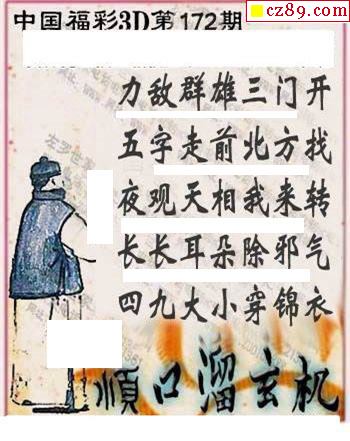 cz89.com
中国福彩3D第172期
力敌群雄三门开
五字走前北方找
夜观天相我来转
长长耳朵除邪气
四九大小穿锦衣
順口溜玄机